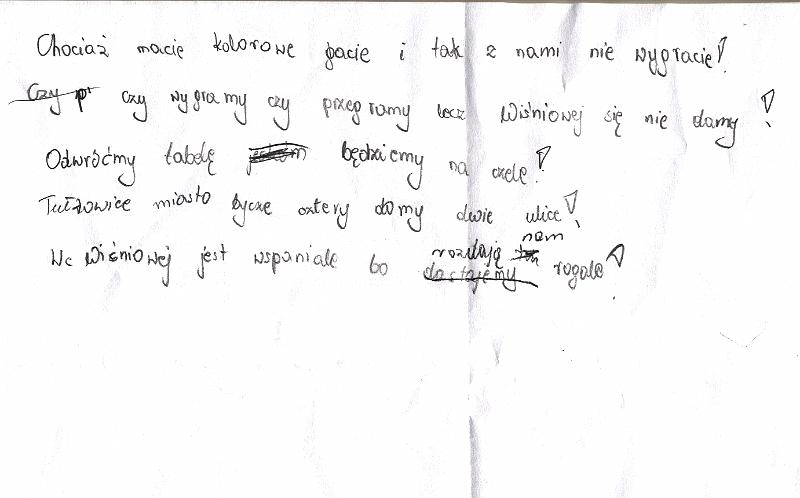 Chociaż macie kolorowe gacie i tak z nami nie wygracie!
czy wygramy czy przegramy lecz Wiśniowej się nie damy!
Odwróćmy tabelę będziemy na czele!
miasto cztery domy dwie ulice!
We Wiśniowej jest wspaniale bo rozdają nam rogale!